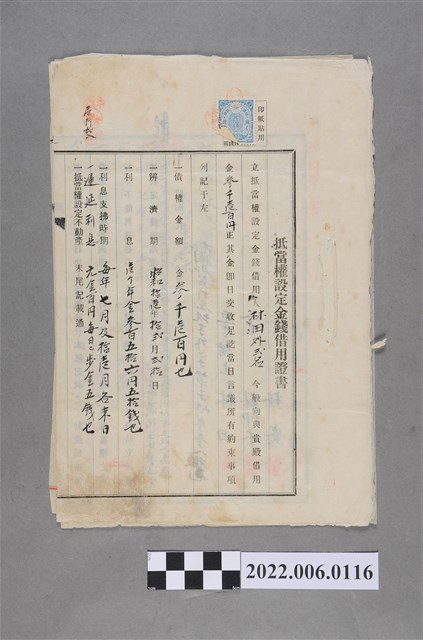 印紙貼用
抵當權設定金錢借用證書
立抵當權設定金錢借用人林田外弍名 今般向與貴殿借用
金參千壹百円正其金卽日交收足訖當日言議所有約束事項
列記于左
一債權金額 金參千壹百円也
一辨濟期 昭和拾壹年拾弍月弍拾日
一利息 壹ケ年金參百五拾六円五拾錢也
一利息支拂時期 每年七月及拾弍月各末日
一遲延利息 元金百円每日ニ步金五錢也
一抵當權設定不動產 末尾記載通
2022.006.0116